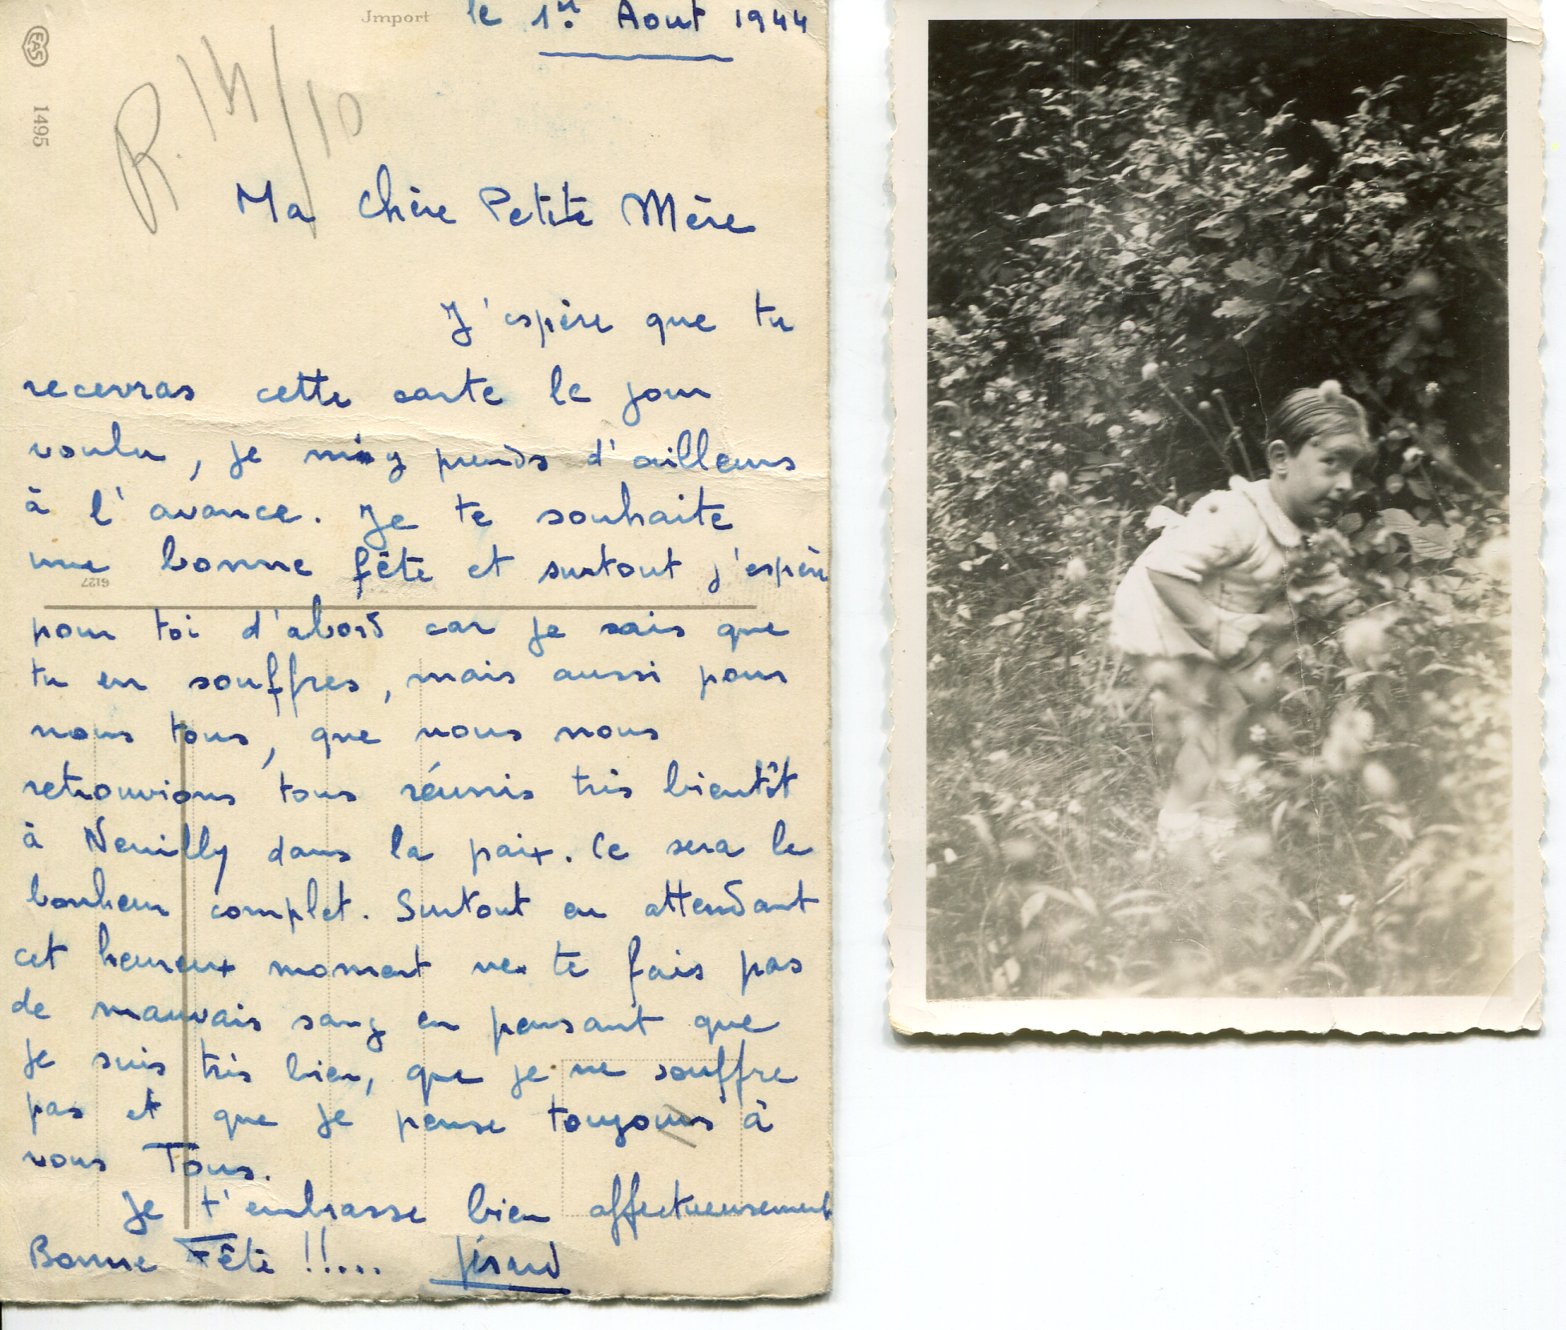 Import
EAS
1495
le 1er Aout 1944
R. 14/10
Ma Chère Petite Mère
J'espère que tu
recevras cette carte le jour
voulu, je m'y prends d'ailleurs
à l'avance. Je te souhaite
une bonne fête et surtout j'espère
6127
pour toi d'abord car je sais que
tu en souffres, mais aussi pour
nous tous, que nous nous
retrouvions tous réunis très bientôt
à Neuilly dans la paix. Ce sera le
bonheur complet. Surtout en attendant
cet heureux moment ne te fais pas
de mauvais sang en pensant que
je suis très bien, que je ne souffre
pas et que je pense toujours à
vous Tous.
Je t'embrasse bien affectueusement
Bonne Fête !!...  Gérard